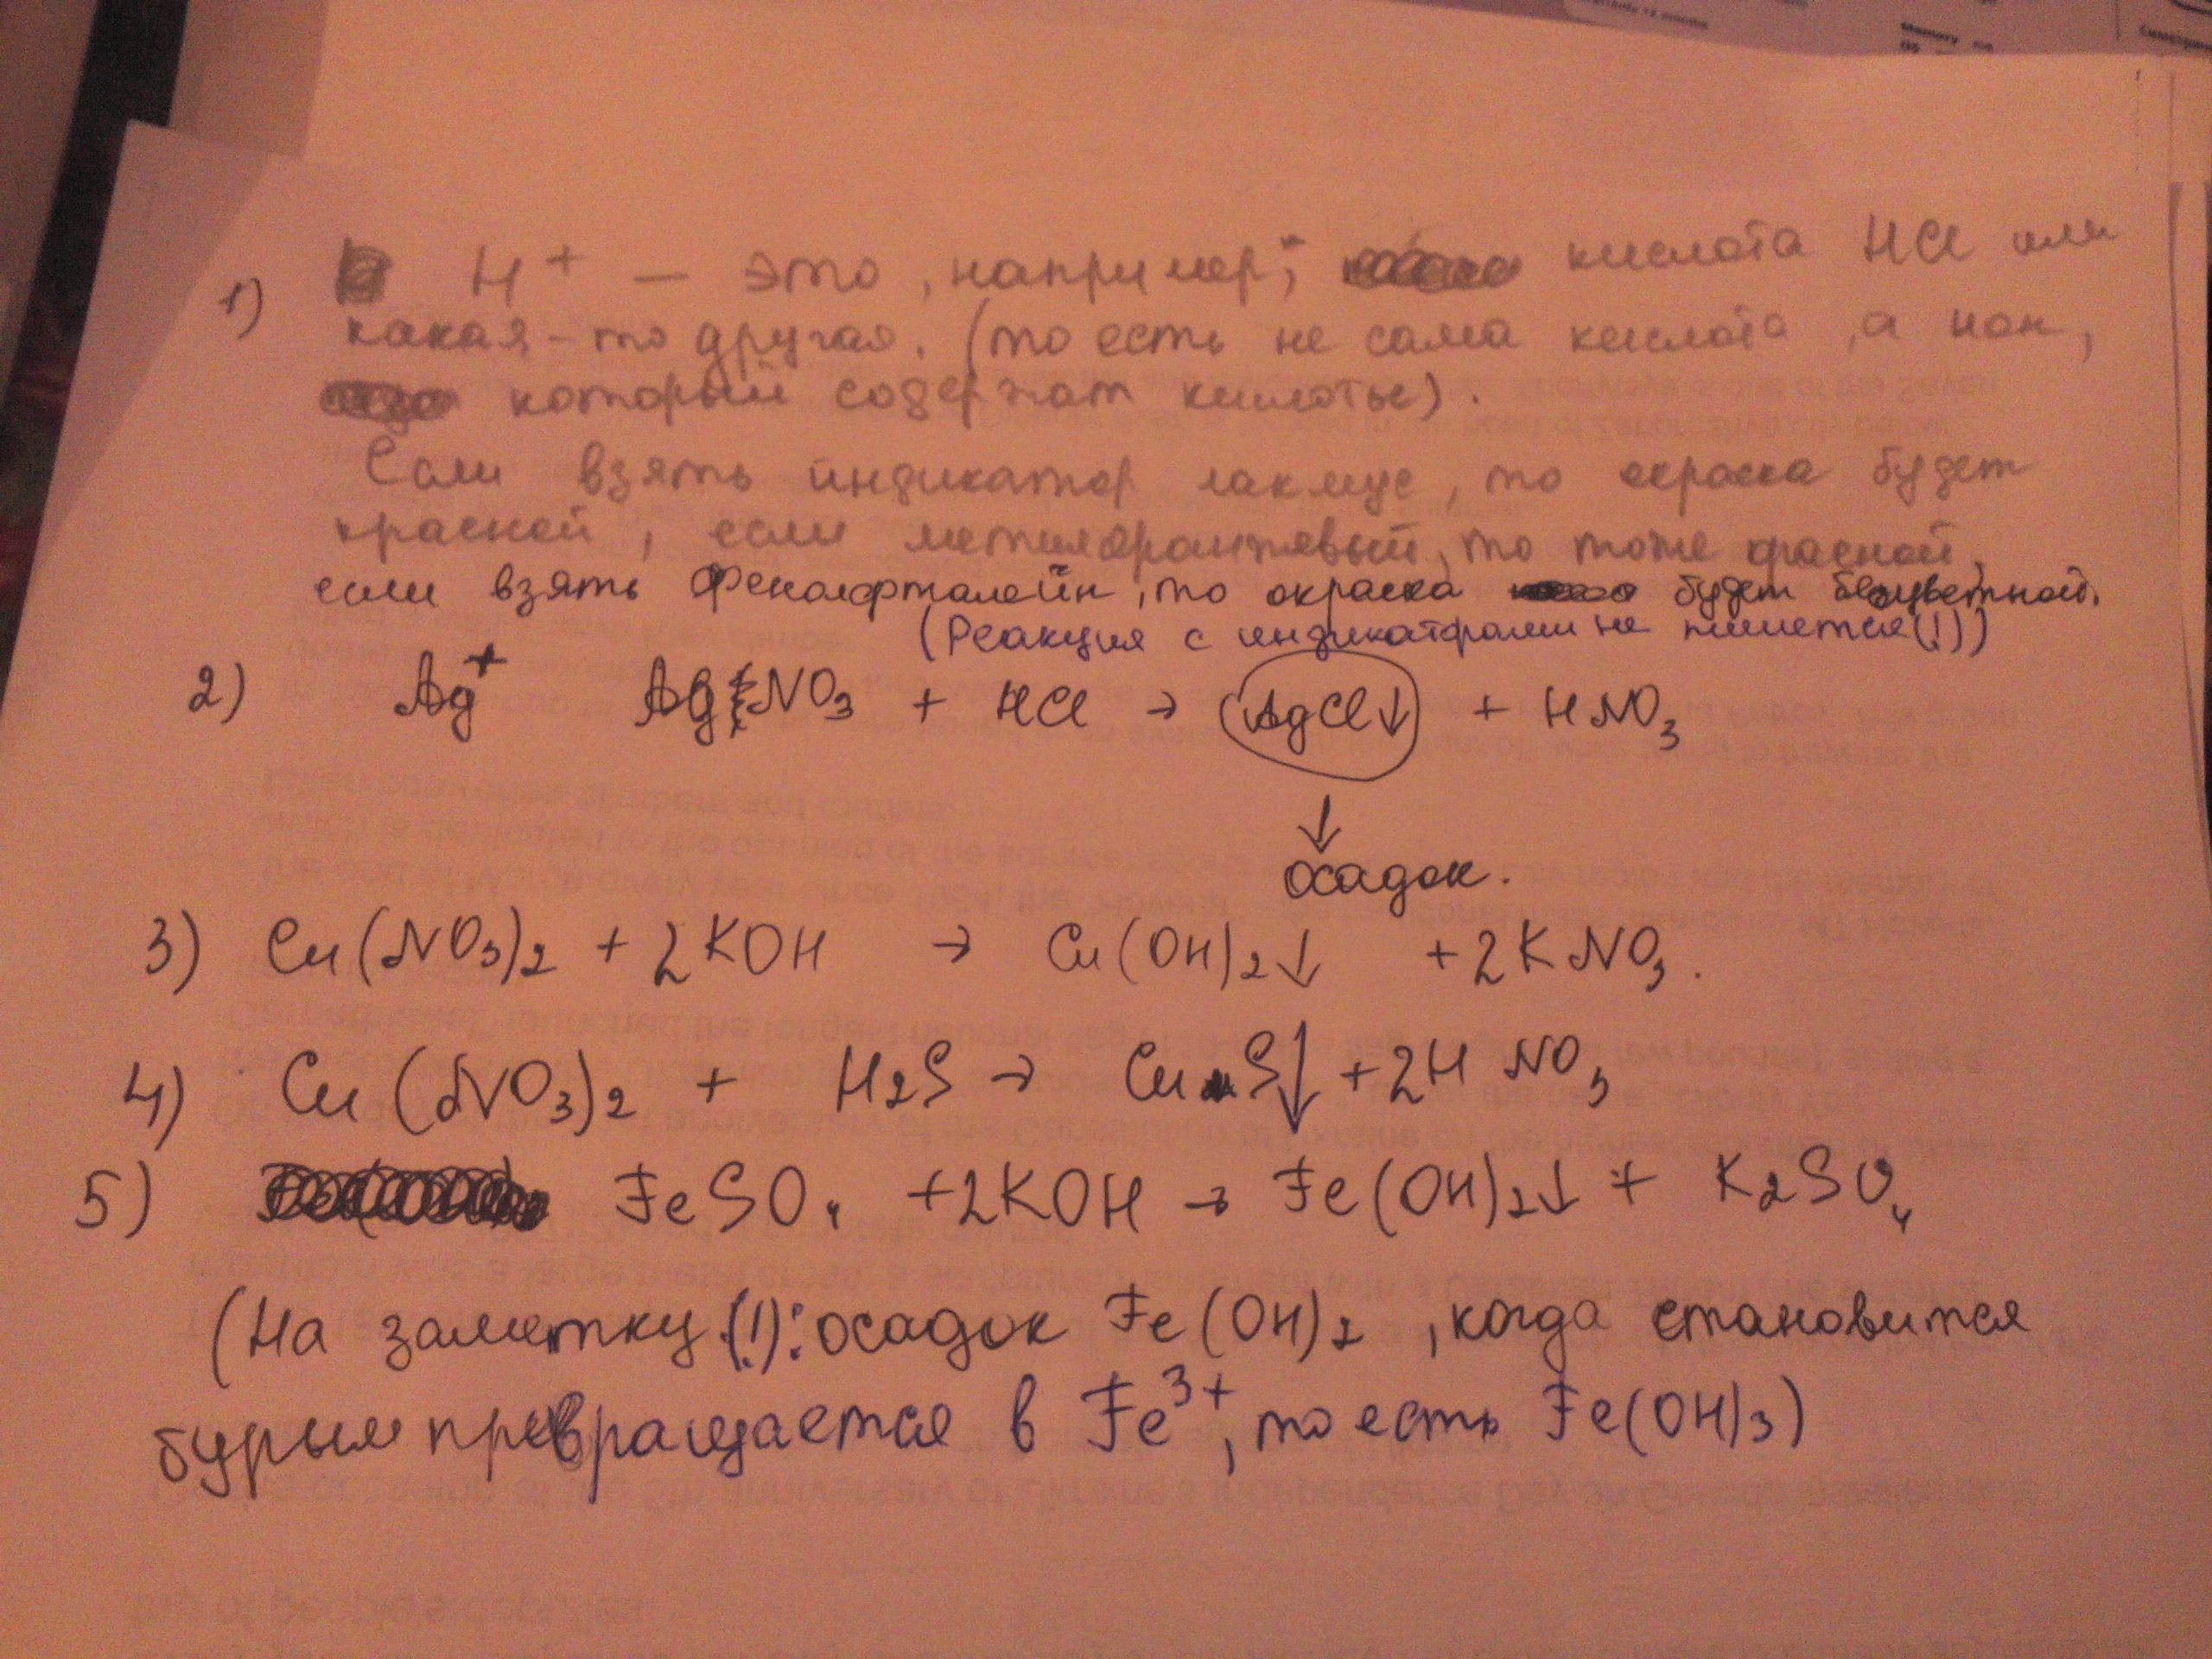 1) H⁺ — это, например, кислота HCl или
какая-то другая. (то есть не сама кислота, а ион,
который содержат кислоты).
Если взять индикатор лакмус, то окраска будет
красной, если метилоранжевый, то тоже красной,
если взять фенолфталейн, то окраска будет бесцветной.
(Реакция с индикаторами не пишется(!))
2) Ag⁺ AgNO₃ + HCl → AgCl↓ + HNO₃
↓
осадок.
3) Cu(NO₃)₂ + 2KOH → Cu(OH)₂↓ + 2KNO₃.
4) Cu(NO₃)₂ + H₂S → CuS↓ + 2HNO₃
5) FeSO₄ + 2KOH → Fe(OH)₂↓ + K₂SO₄
(На заметку(!): осадок Fe(OH)₂, когда становится
бурым превращается в Fe³⁺, то есть Fe(OH)₃)